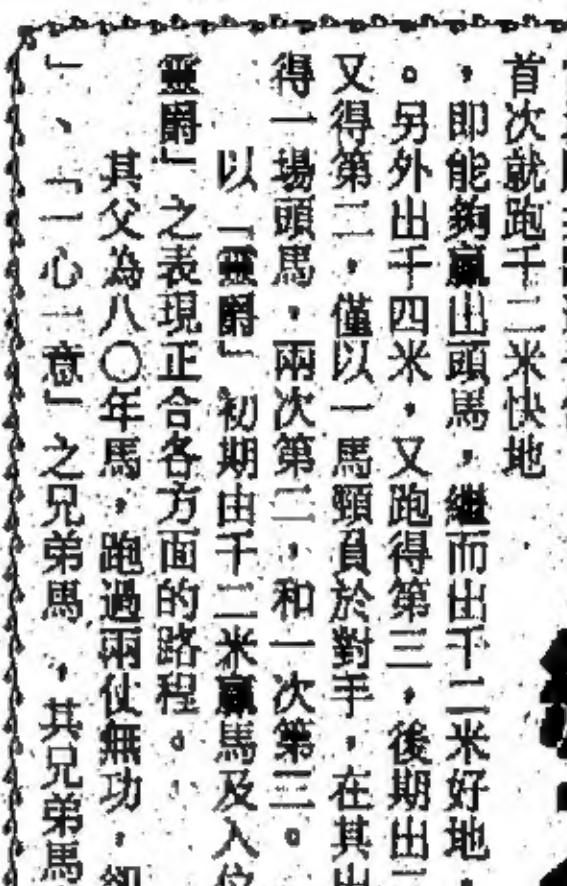 首次就跑千二米快地
，即能夠贏出頭馬，繼而出千二米好地，
。另外出千四米，又跑得第三，後期出
又得第二，僅以一馬頸負於對手，在其出
得一場頭馬，兩次第二，和一次第三。
以「靈爵」初期由千二米贏馬及入位
靈爵」之表現正合各方面的路程。
其父為八〇年馬，跑過兩仗無功，卻
」、「一心一意」之兄弟馬，其兄弟馬